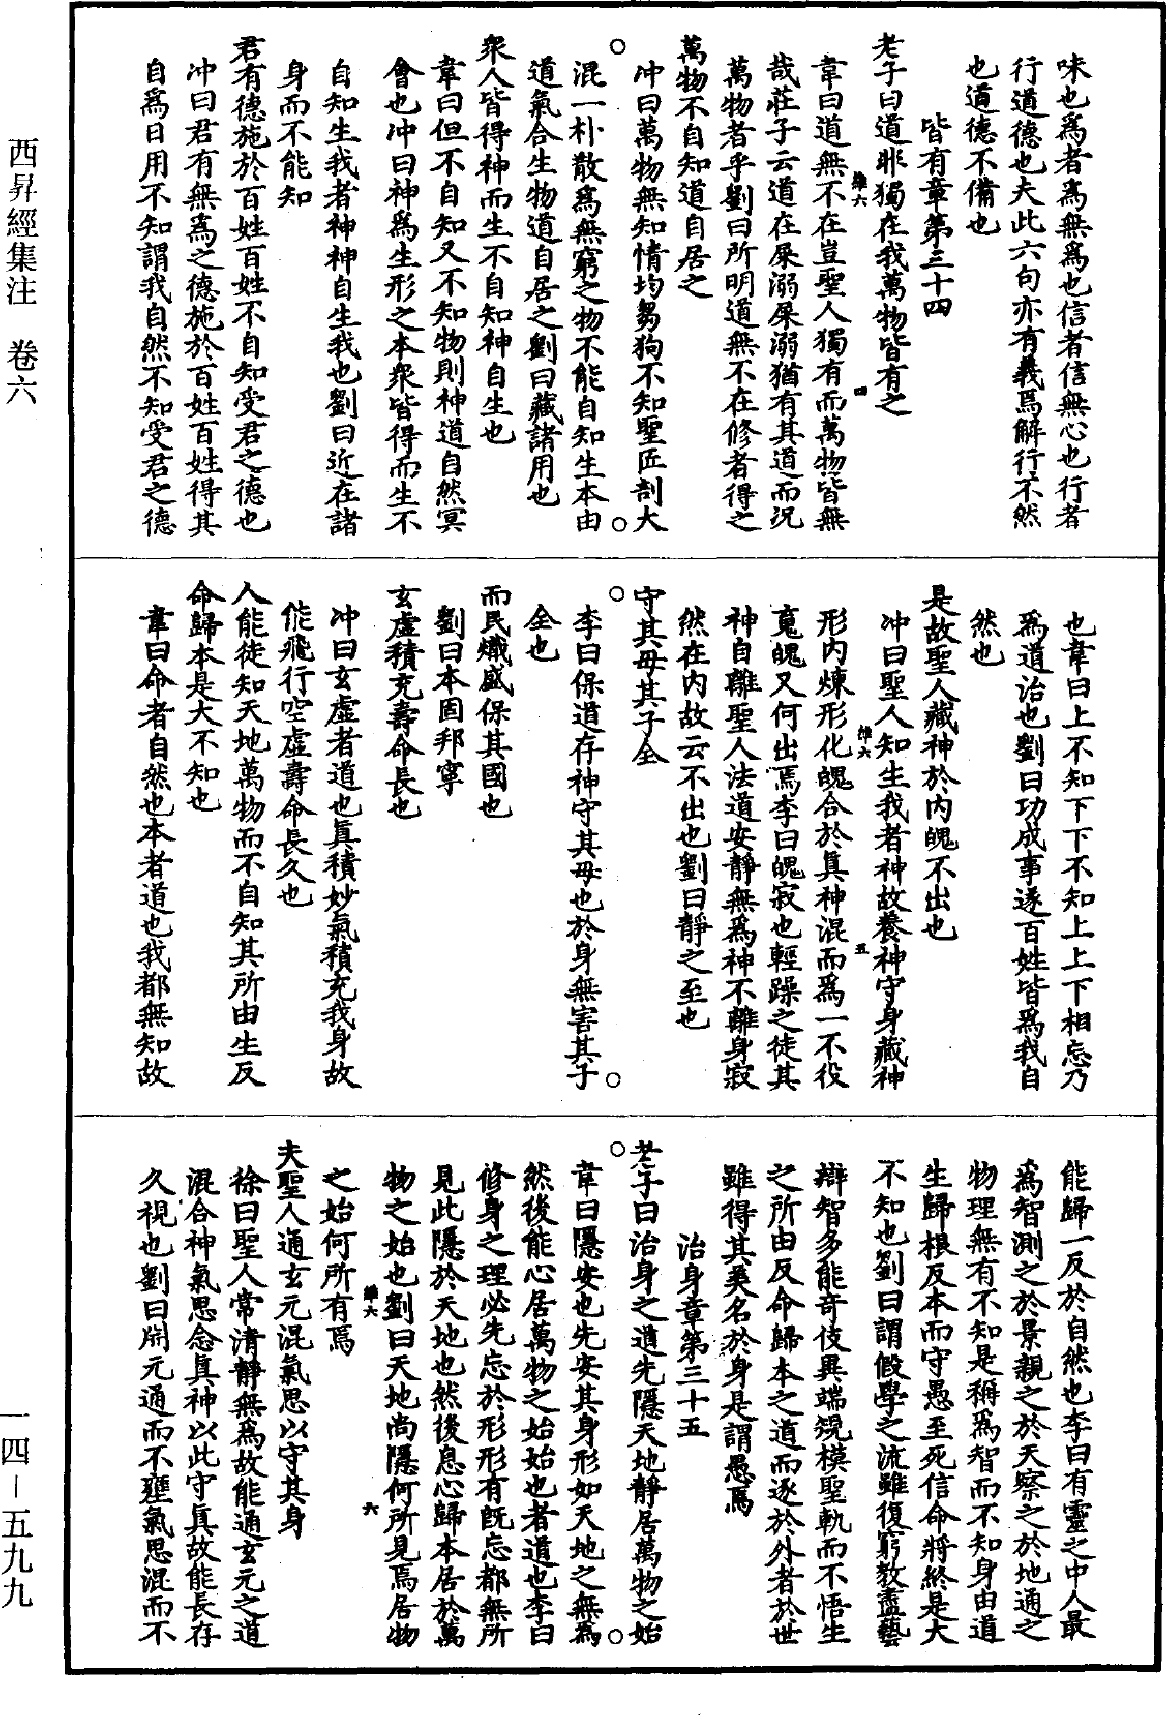 味也爲者爲無爲也信者信無心也行者
行道德也夫此六句亦有義焉解行不然
也道德不備也
皆有章第三十四
老子曰道非獨在我萬物皆有之
韋曰道無不在豈聖人獨有而萬物皆無
哉莊子云道在屎溺屎溺猶有其道而況
萬物者乎劉曰所明道無不在修者得之
萬物不自知道自居之
冲曰萬物無知情均芻狗不知聖匠剖大
混一朴散爲無窮之物不能自知生本由
道氣合生物道自居之劉曰藏諸用也
衆人皆得神而生不自知神自生也
韋曰但不自知又不知物則神道自然冥
會也冲曰神爲生形之本衆皆得而生不
自知生我者神神自生我也劉曰近在諸
身而不能知
君有德施於百姓百姓不自知受君之德也
冲曰君有無爲之德施於百姓百姓得其
自爲日用不知謂我自然不知受君之德
維六
四
也韋曰上不知下下不知上上下相忘乃
爲道治也劉曰功成事遂百姓皆爲我自
然也
是故聖人藏神於内魄不出也
冲曰聖人知生我者神故養神守身藏神
形内煉形化魄合於真神混而爲一不役
䰟魄又何出焉李曰魄寂也輕躁之徒其
神自離聖人法道安靜無爲神不離身寂
然在内故云不出也劉曰靜之至也
守其母其子全
李曰保道存神守其母也於身無害其子
全也
而民熾盛保其國也
劉曰本固邦寧
玄虛積充壽命長也
冲曰玄虛者道也真積妙氣積充我身故
能飛行空虛壽命長久也
人能徒知天地萬物而不自知其所由生反
命歸本是大不知也
韋曰命者自然也本者道也我都無知故
維六
五
能歸一反於自然也李曰有靈之中人最
爲智測之於景親之於天察之於地通之
物理無有不知是稱爲智而不知身由道
生歸根反本而守愚至死信命將終是大
不知也劉曰謂假學之流雖復窮教盡藝
辯智多能奇伎異端䂓模聖軌而不悟生
之所由反命歸本之道而逐於外者於世
雖得其美名於身是謂愚焉
治身章第三十五
老子曰治身之道先隱天地靜居萬物之始
韋曰隱安也先安其身形如天地之無爲
然後能心居萬物之始始也者道也李曰
修身之理必先忘於形形有旣忘都無所
見此隱於天地也然後息心歸本居於萬
物之始也劉曰天地尚隱何所見焉居物
之始何所有焉
夫聖人通玄元混氣思以守其身
徐曰聖人常清靜無爲故能通玄元之道
混合神氣思念真神以此守真故能長存
久視也劉曰開元通而不壅氣思混而不
維六
六
西昇經集注　卷六
一四－五九九